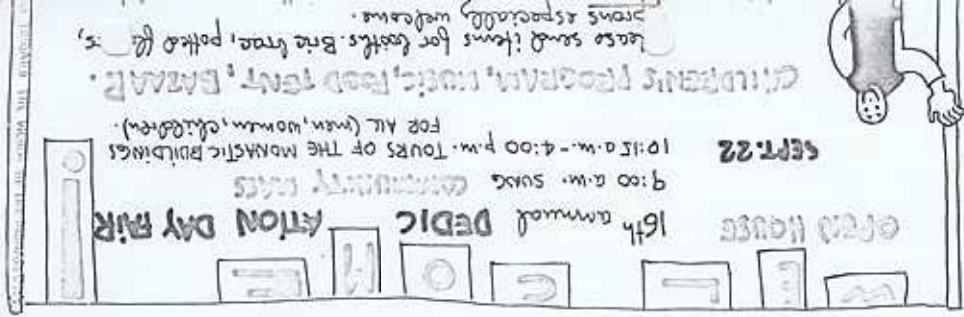 WELCOME!
OPEN HOUSE 16th annual DEDICATION DAY FAIR
9:00 a.m. SUNG COMMUNITY MASS
SEPT. 22 10:15 a.m. - 4:00 p.m. TOURS OF THE MONASTIC BUILDINGS
FOR ALL (men, women, children).
CHILDREN'S PROGRAM, MUSIC, FOOD TENT, BAZAAR.
lease send items for booths. Bric brac, potted
prons especially welcome.